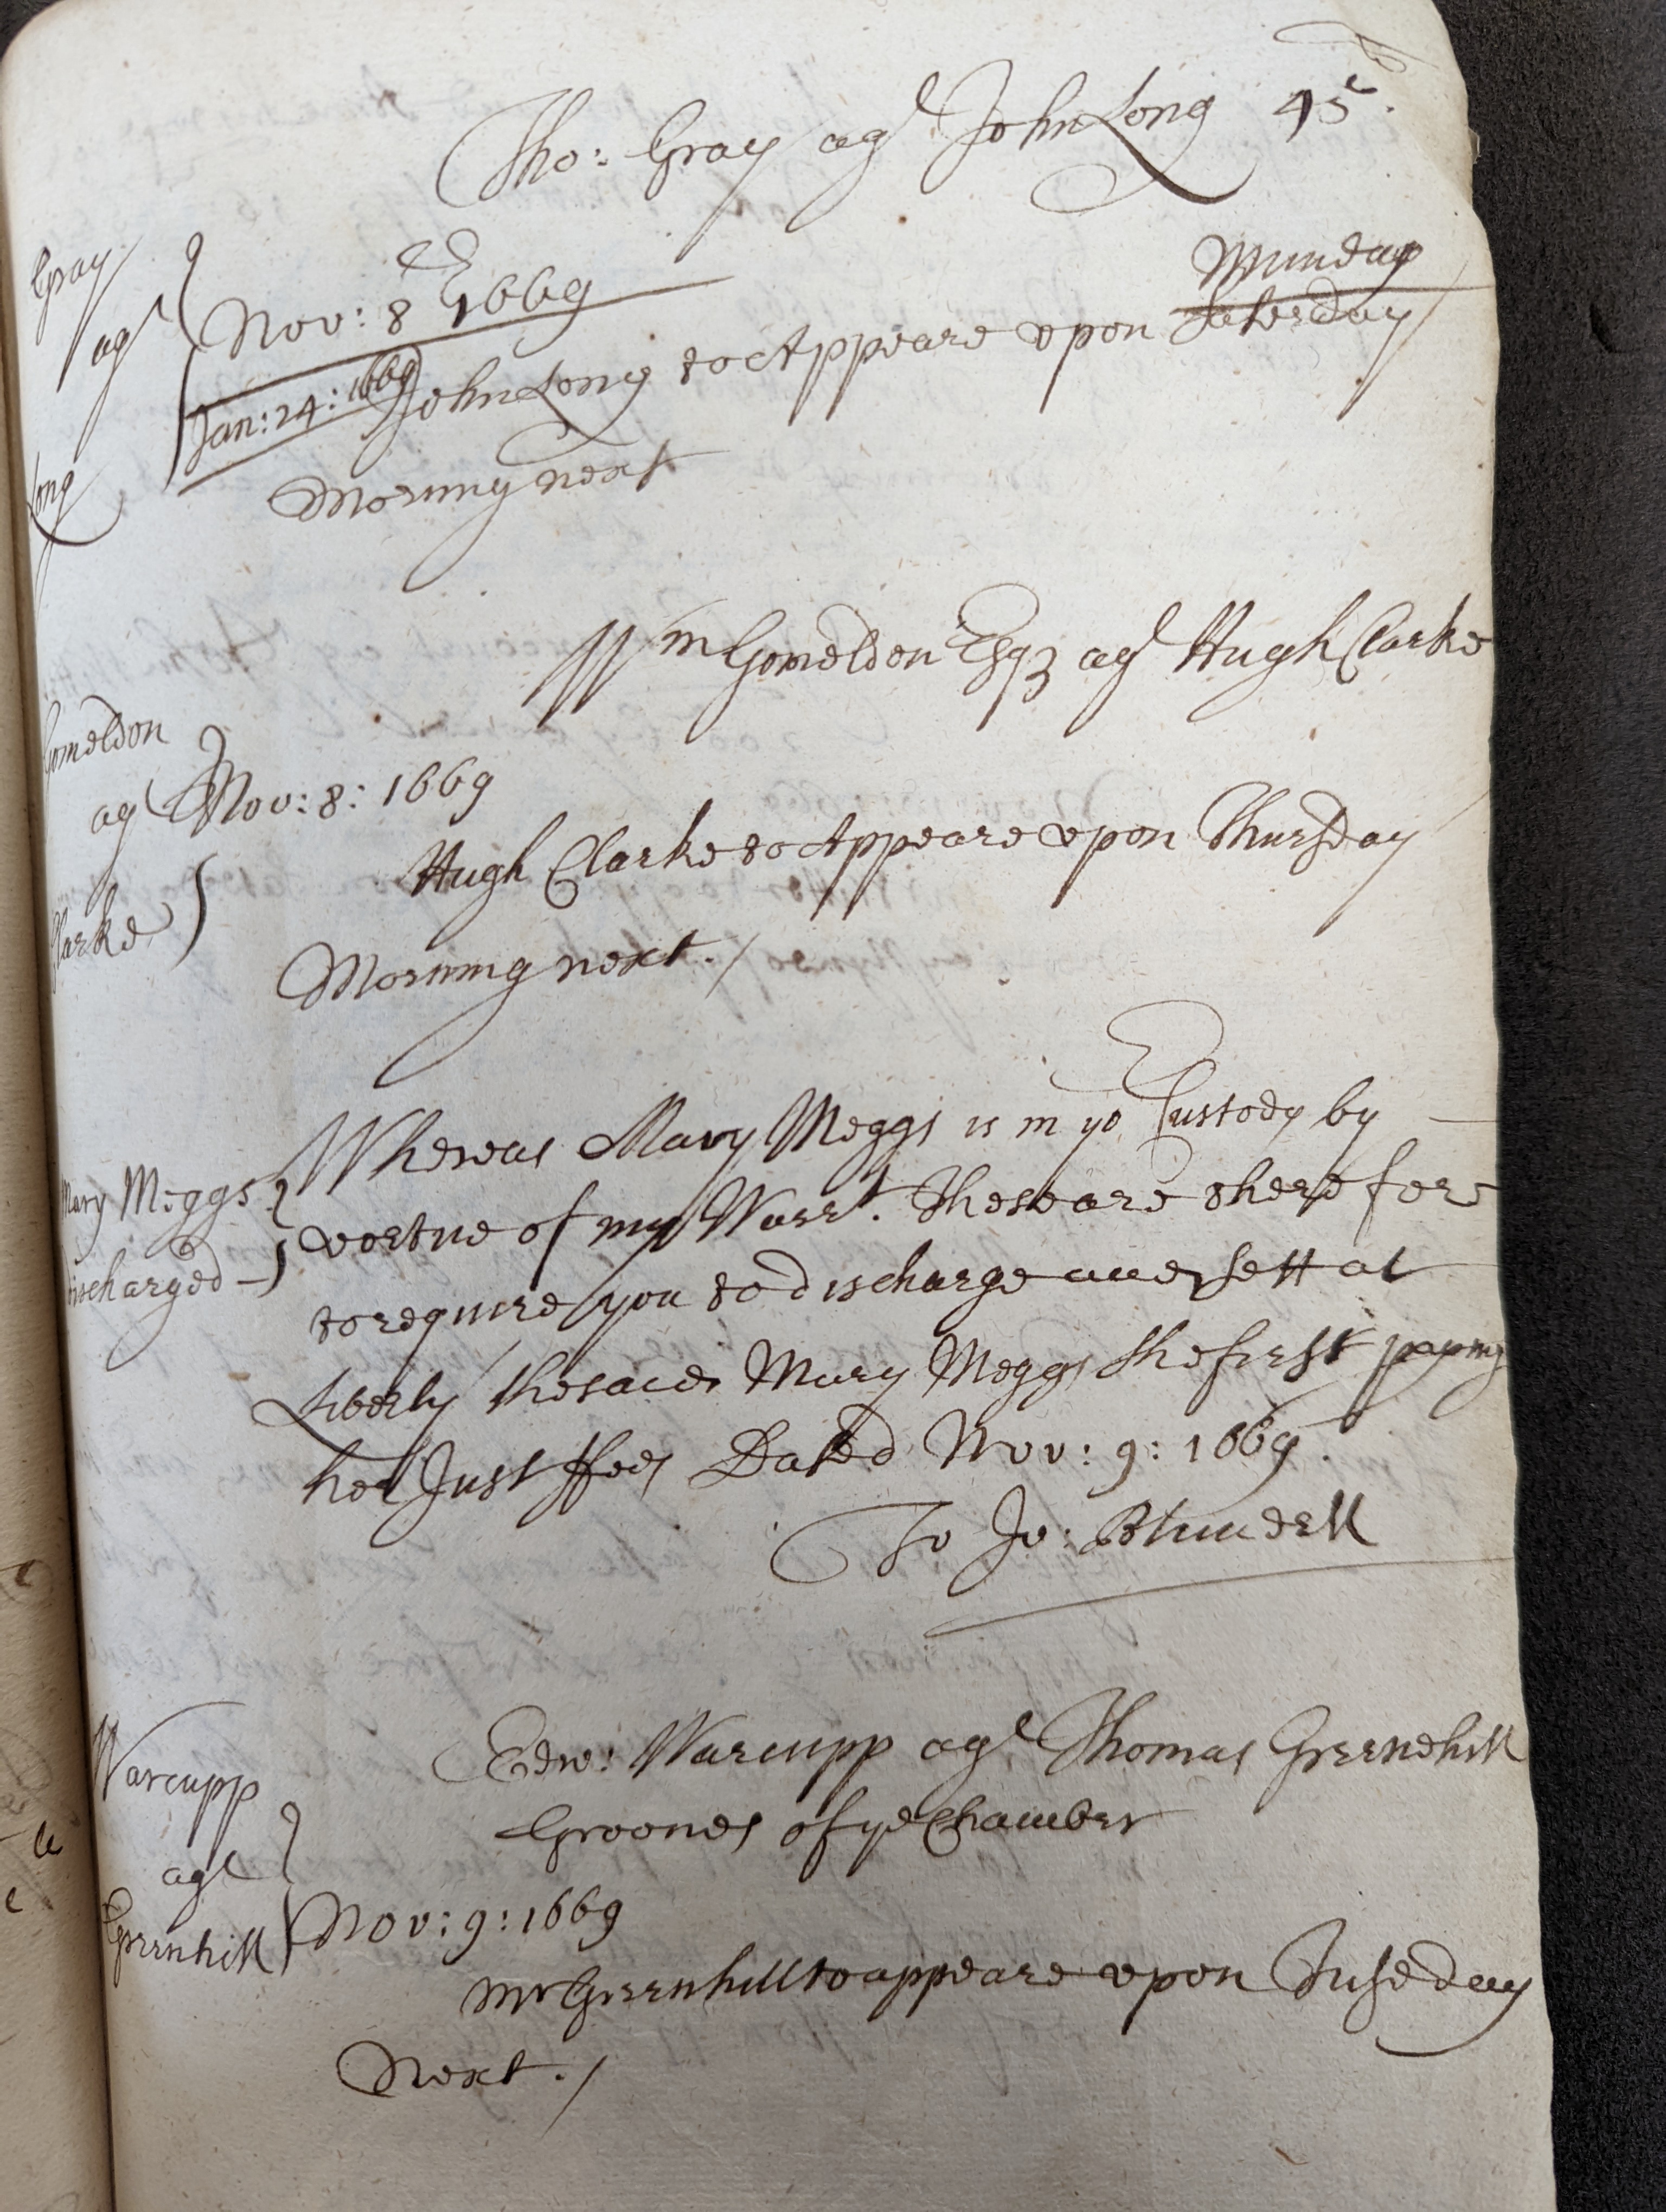 Tho: Gray agt John Long 45l.
Gray
agt
Long
Nov: 8 1669
Munday
Jan: 24: 1669
John Long to Appeare vpon Saterday
Morning next
Wm Gomeldon Esqz agt Hugh Clarke
Gomeldon
agt
Clarke
Nov: 8: 1669
Hugh Clarke to Appeare vpon Thursday
Morning next ./
Mary Meggs
discharged
Whereas Mary Meggs is in yor Custody by
vertue of my Warrt. These are therefore
to require you to discharge and sett at
Liberty the said Mary Meggs she first paying
her Just ffees Dated Nov: 9: 1669.
To Jo: Blundell
Edw: Warcupp agt Thomas Greenehill
Groomes of ye Chamber
Warcupp
agt
Greenhill
Nov: 9: 1669
Mr Greenhill to appeare vpon Tuseday
Next ./